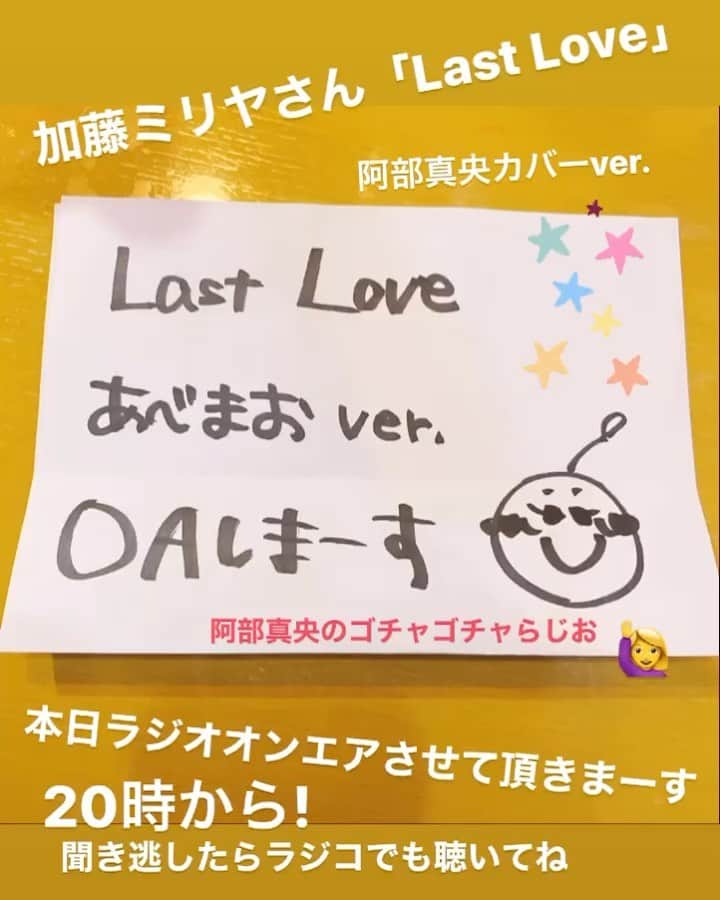 加藤ミリヤさん「Last Love」
阿部真央カバーver.
Last Love
あべまお ver.
OAしまーす
阿部真央のゴチャゴチャらじお
本日ラジオオンエアさせて頂きまーす
20時から!
聞き逃したらラジコでも聴いてね